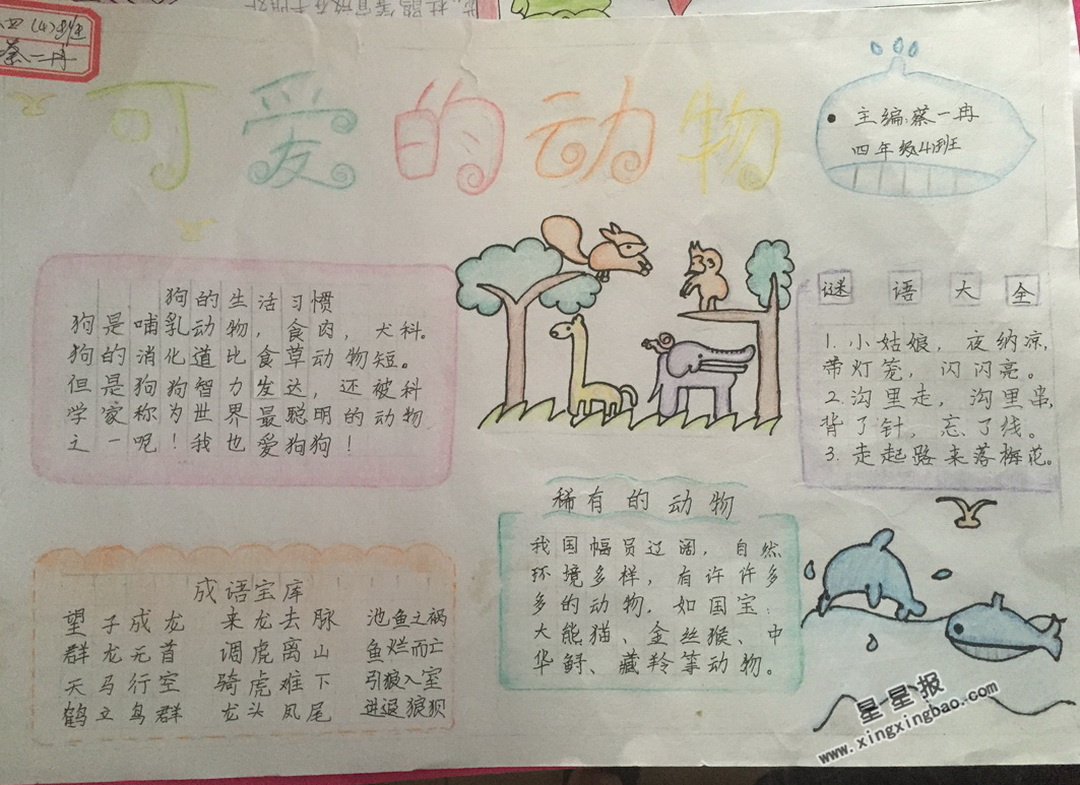 四(4)班
蔡一冉
可爱的动物
主编:蔡一冉
四年级4班
狗的生活习惯
狗是哺乳动物，食肉，犬科。
狗的消化道比食草动物短。
但是狗狗智力发达，还被科
学家称为世界最聪明的动物
之一呢！我也爱狗狗！
谜语大全
1.小姑娘，夜纳凉，
带灯笼，闪闪亮。
2.沟里走，沟里串，
背了针，忘了线。
3.走起路来落梅花。
稀有的动物
我国幅员辽阔，自然
环境多样，有许许多
多的动物，如国宝：
大熊猫、金丝猴、中
华鲟、藏羚等动物。
成语宝库
望子成龙 来龙去脉 池鱼之祸
群龙无首 调虎离山 鱼烂而亡
天马行空 骑虎难下 引狼入室
鹤立鸟群 龙头凤尾 进退狼狈
星星报
www.xingxingbao.com